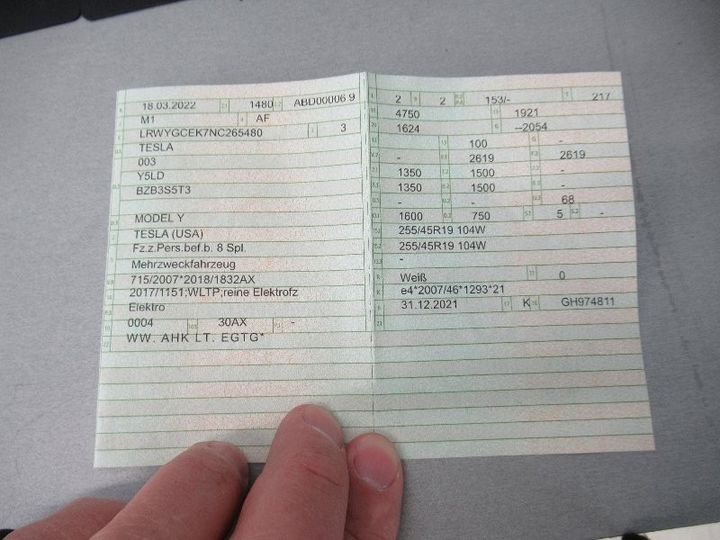 18.03.2022 1480 ABD00006 9
M1 AF
LRWYGCEK7NC265480 3
TESLA
003
Y5LD
BZB3S5T3
MODEL Y
TESLA (USA)
Fz.z.Pers.bef.b. 8 Spl.
Mehrzweckfahrzeug
715/2007*2018/1832AX
2017/1151;WLTP;reine Elektrofz
Elektro
0004 30AX -
WW. AHK LT. EGTG*
2 2 153/- 217
4750 1921
1624 --2054
- 100 -
- 2619 2619
1350 1500 -
1350 1500 -
- - 68
1600 750 5 -
255/45R19 104W
255/45R19 104W
-
Weiß 0
e4*2007/46*1293*21
31.12.2021 K GH974811